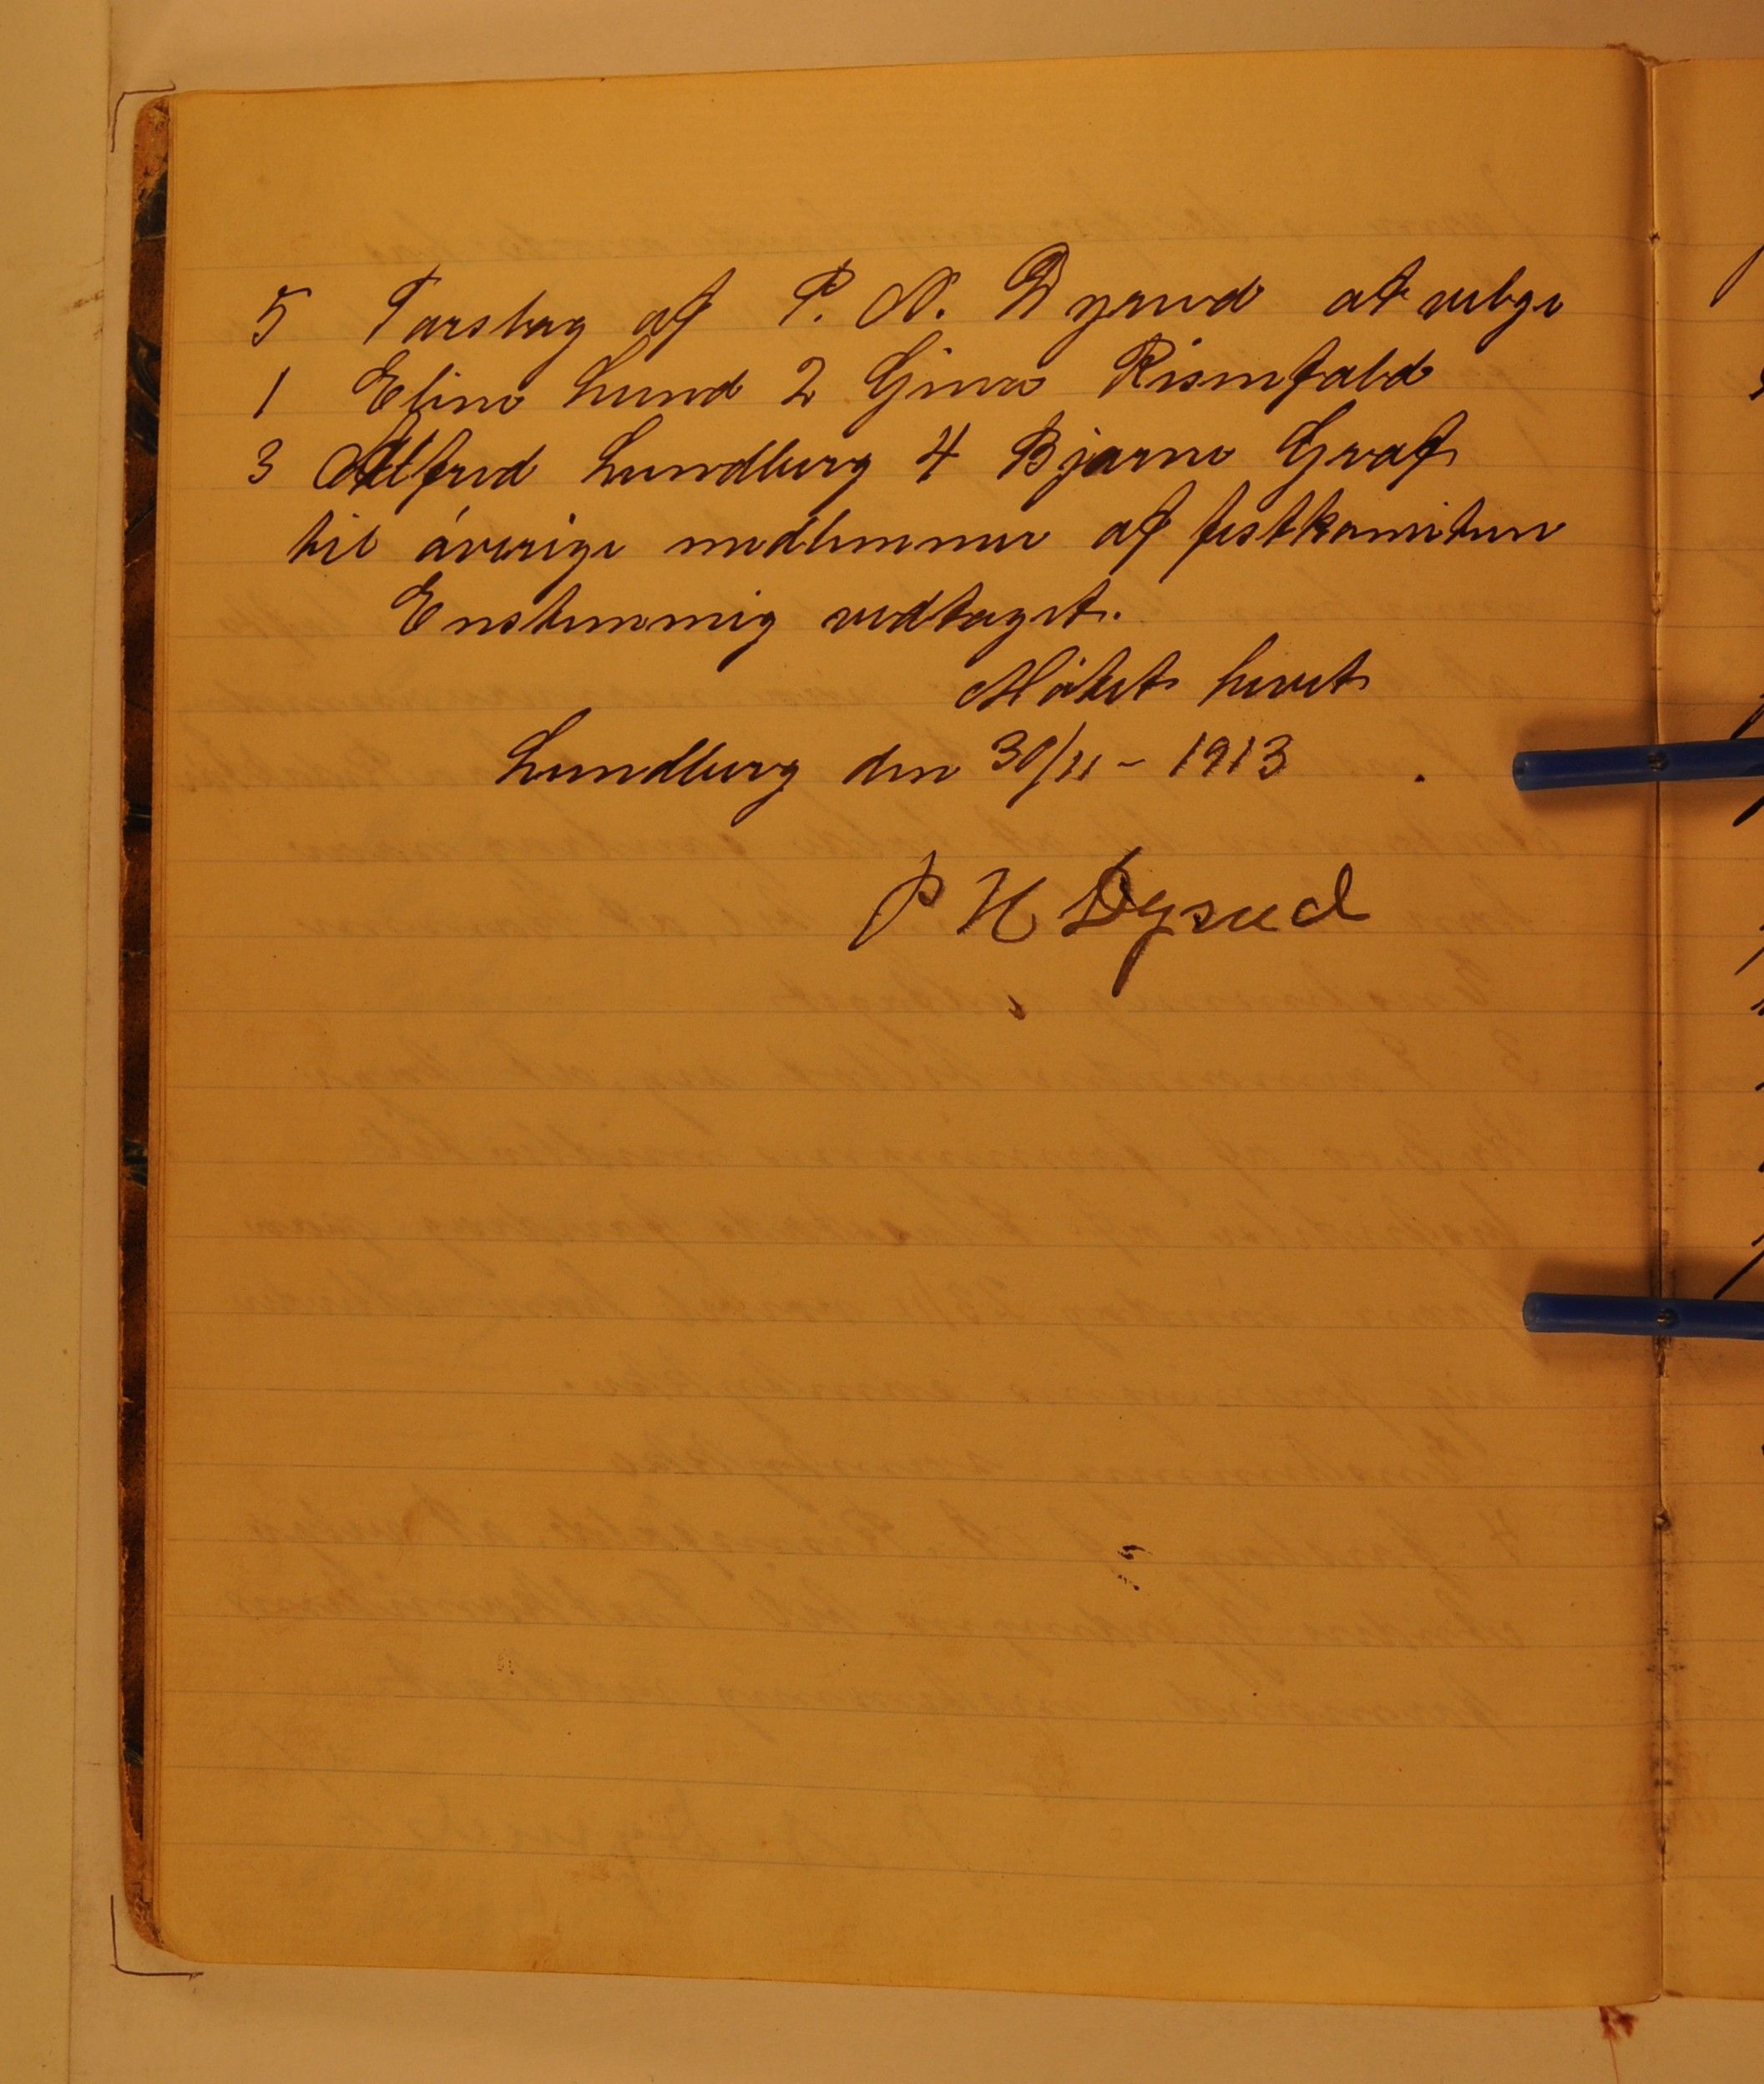 5 Forslag af P. N. Dysud at velge
1 Eline Lund 2 Gina Risenfald
3 Alfred Lundberg 4 Bjarne Graf
til åverige medlemmer af festkomiteen
Enstemmig vedtaget.
Mötet hevet
Lundberg den 30/11 - 1913
P N Dysud